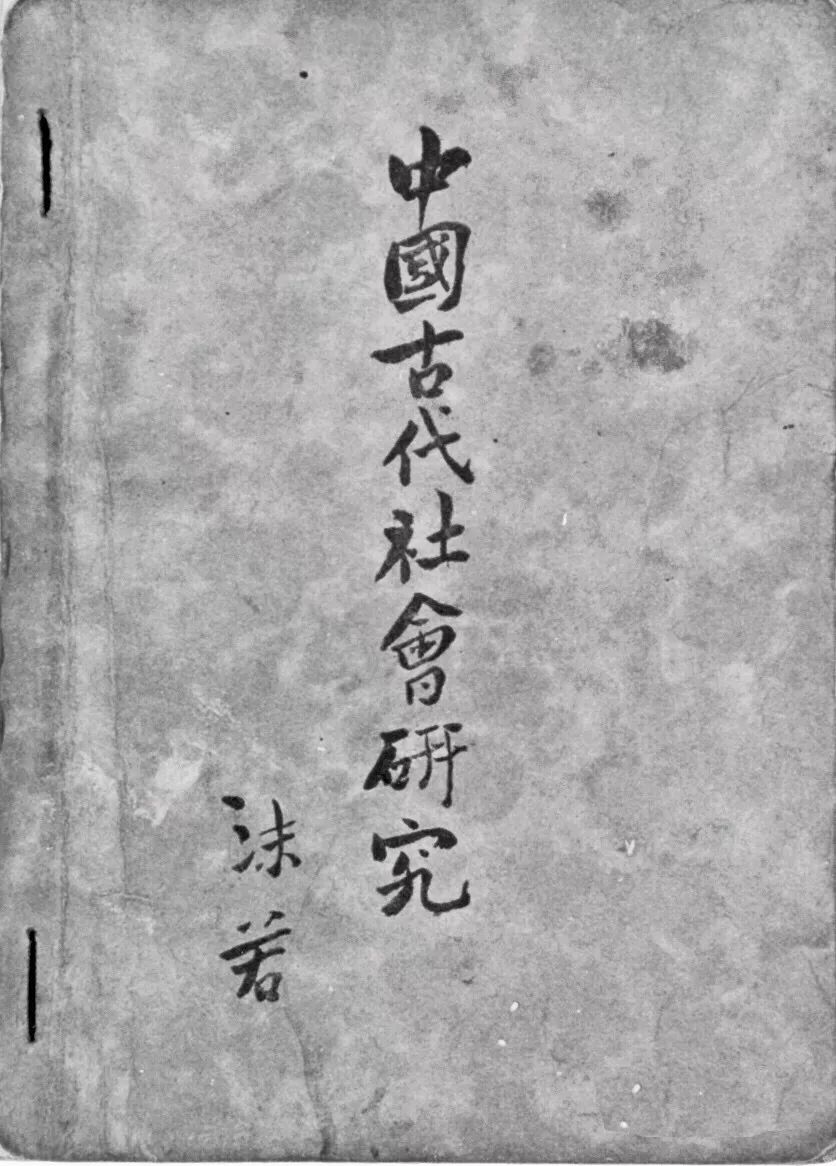 中國古代社會研究
沫若